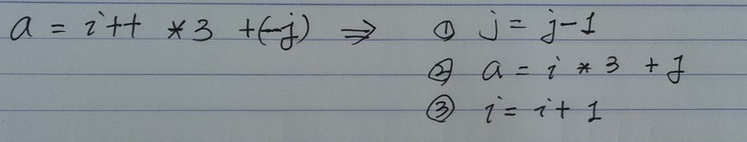 a = i++ *3 +(--j) ⇒ ① j = j-1
② a = i * 3 + j
③ i = i + 1